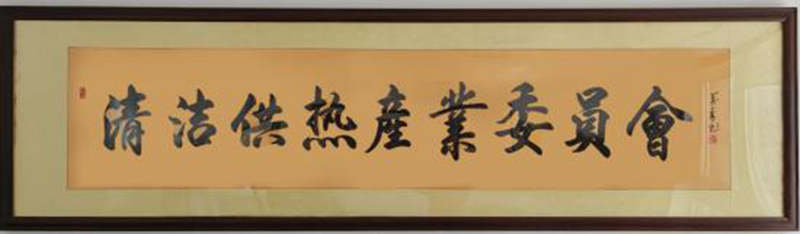 清洁供热產業委員會